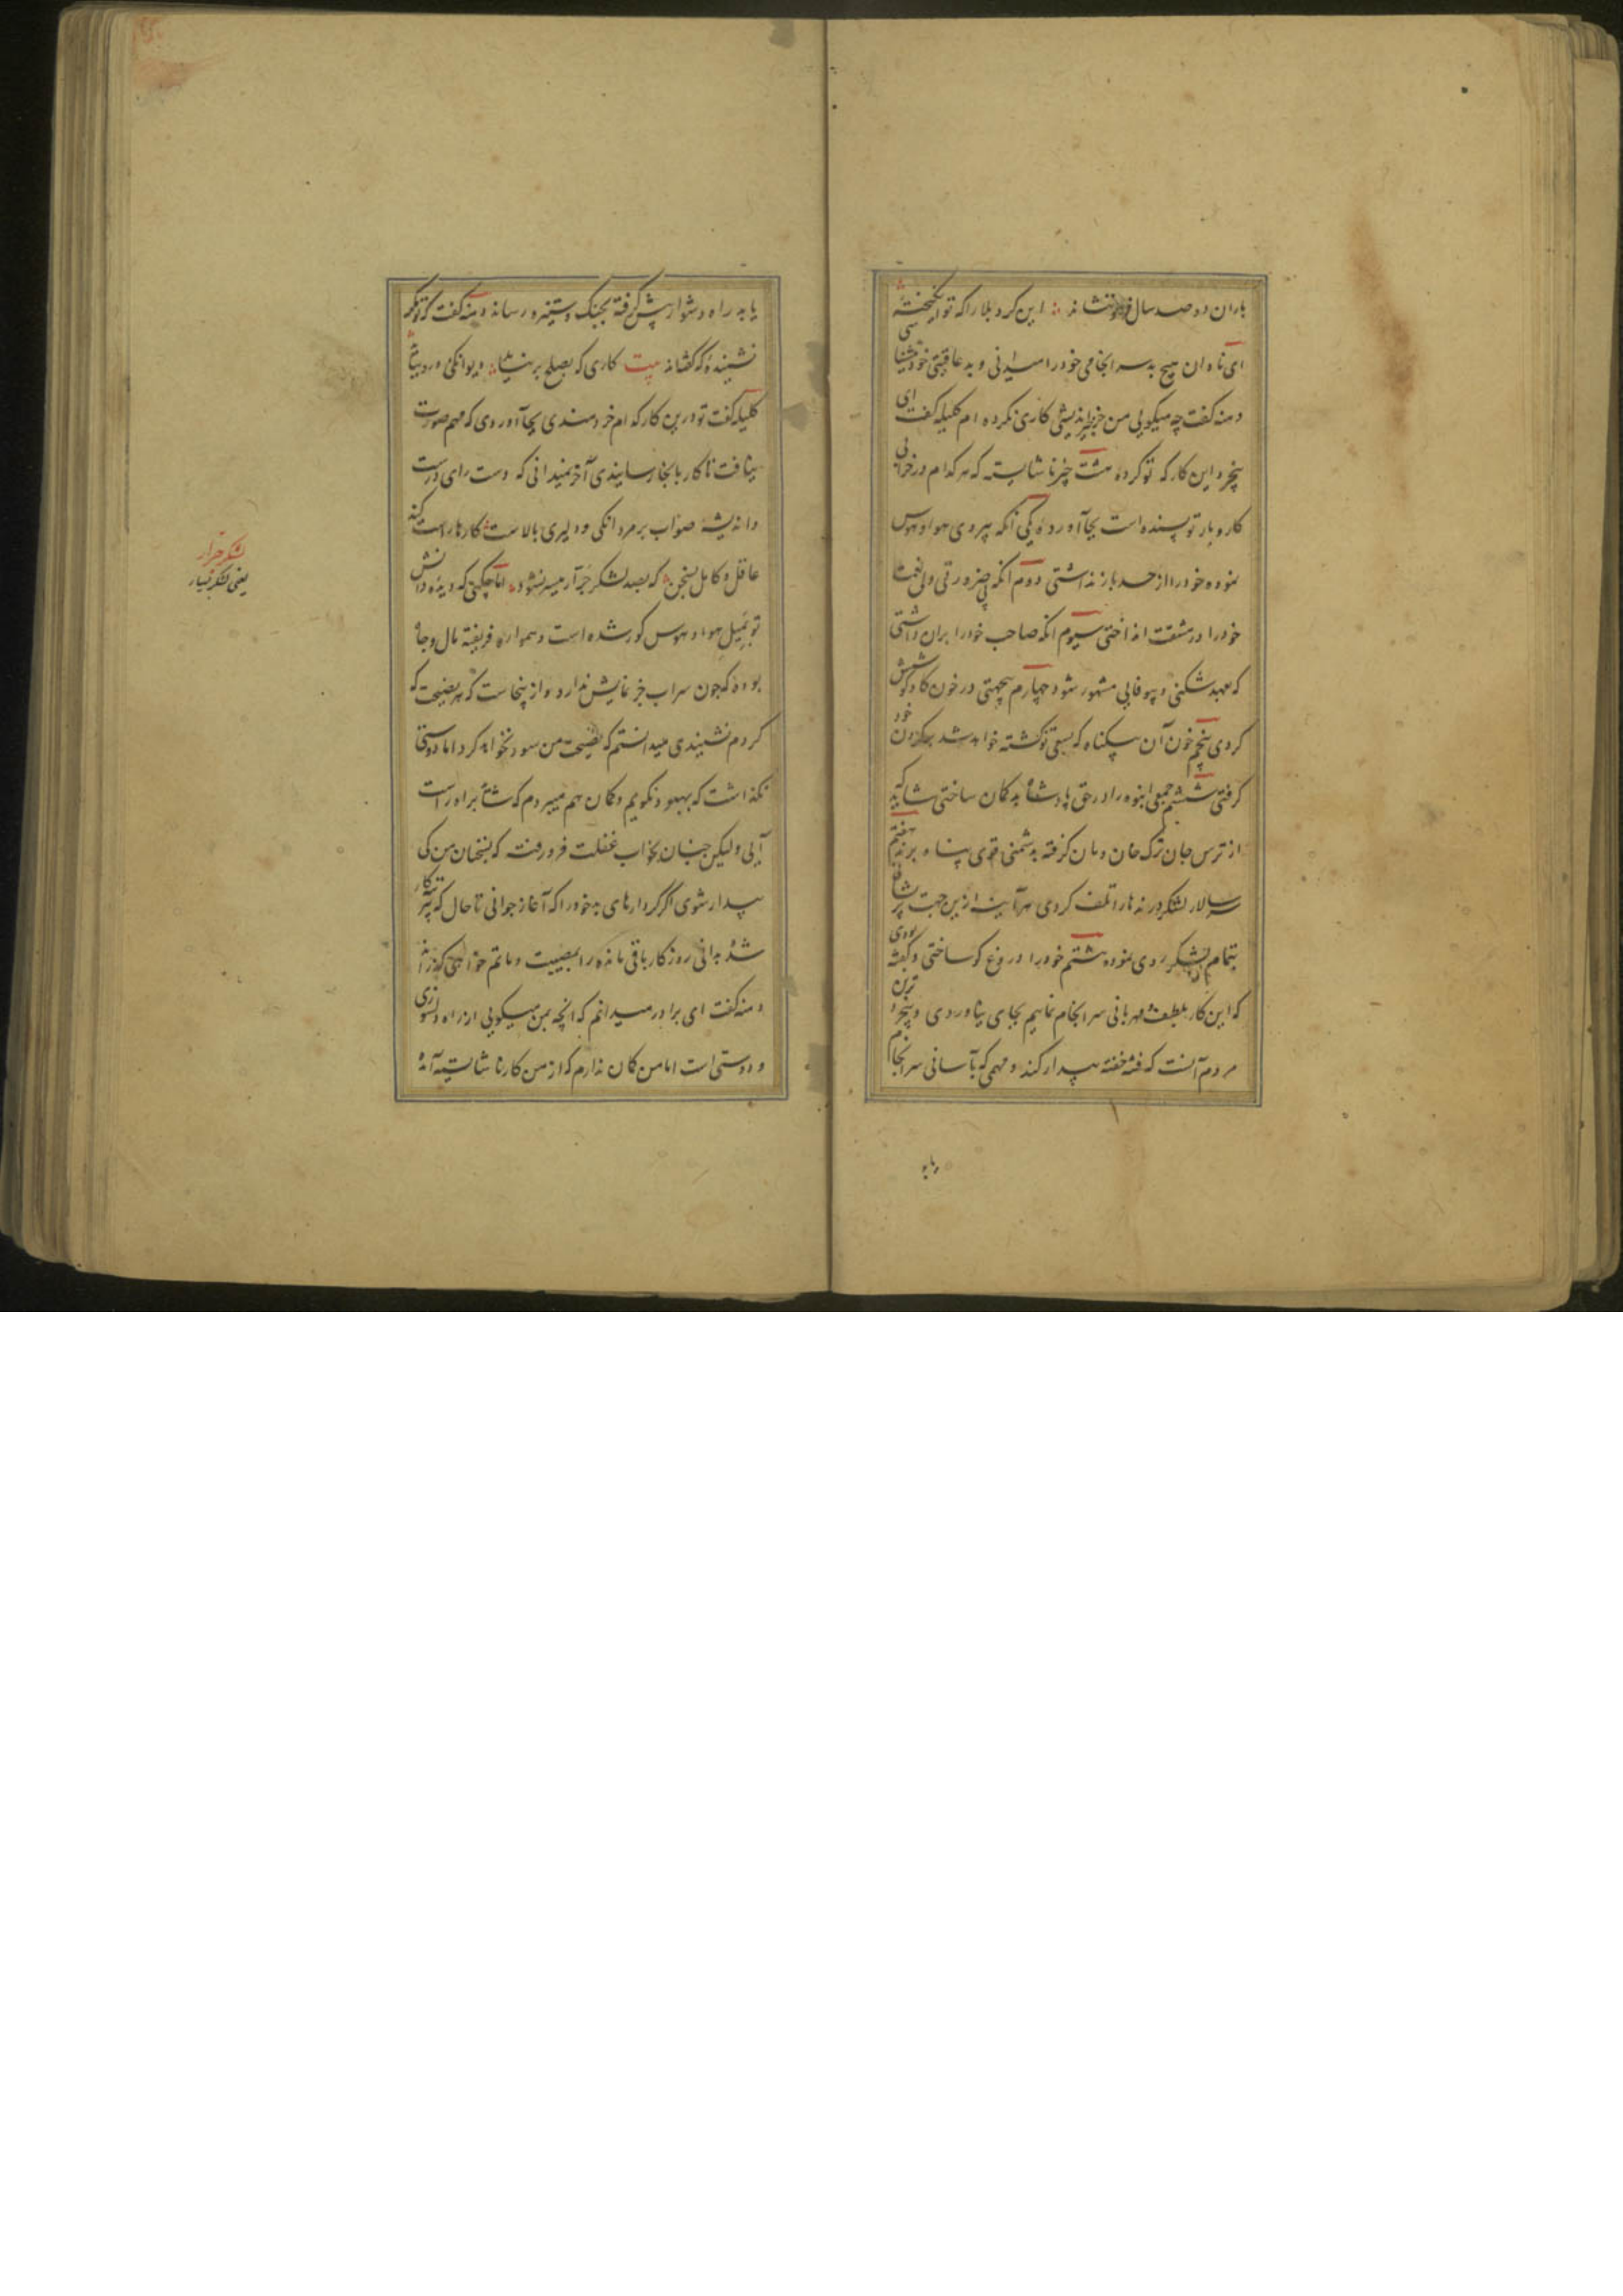 باران دو صد سال فرو ننشاند این گرد بلا را که تو انگیخته
ای نادان هیچ بد سرانجامی خود را میدانی و بد عاقبتی خود میشناسی
دمنه گفت چه میکویی من جز خیراندیشی کاری نکرده ام کلیله گفت ای
بیخرد این کار که تو کرده هشت چیز ناشایسته که هر کدام در خرابی
کار و بار تو بسنده است بجا آورده یکی آنکه پیروی هوا و هوس
نموده خود را از حسد باز نداشتی دوم آنکه بی ضرورتی ولی نعمت
خود را در مشقت انداختی سیوم آنکه صاحب خود را بران داشتی
که بعهد شکنی و بیوفایی مشهور شود چهارم بیجهتی در خون گاو کوشش
کردی پنجم خون آن بیکناه که بسعی تو کشته خواهد شد بکردن خود
گرفتی ششم جمعی انبوه را در حق پادشاه بدگمان ساختی شاید که
از ترس جان ترک خان و مان گرفته بدشمنی قوی پناه برند هفتم
سر سالار لشکر درنده ها را تلف کردی هرآینه ازین جهت
بتمام لشکر روی نموده هشتم خود را دروغ گو ساختی و گفته بودی
که این کار بلطف و مهربانی سرانجام نمایم بجای نیاوردی و بیخردترین
مردم آنست که فتنه خفته بیدار کند و مهمی که بآسانی سرانجام
یابد
یابد راه دشوار پیش گرفته بجنک و ستیزه رساند دمنه گفت تو مگر
نشنیده که گفته اند بیت کاری که بصلح بر نیاید دیوانگی درو بباید
کلیله گفت تو درین کار کدام خردمندی بجا آوردی که مهم صورت
نیافت تا کار باینجا رسانیدی آخر نمیدانی که دست رای درست
و اندیشه صواب بر مردانگی و دلیری بالاست کارها راست کند
عاقل و کامل بسخن که بصد لشکر جرار میسر نشود اما چکنی که دیده دانش
تو بمیل هوا و هوس کور شده است و همواره فریفته مال و جاه
بوده که چون سراب جز نمایش ندارد و از ینجاست که هر نصیحت که
کردم نشنیدی میدانستم که نصیحت من سود نخواهد کرد اما دوستی
نگذاشت که بهبود نکویم و کمان هم میبردم که شاید براه راست
آیی ولیکن چنان بخواب غفلت فرو رفته که بسخنان من کی
بیدار شوی اگر کردارهای بد خود را که آغاز جوانی تا حال که پیر
شده بدانی روزکار باقی مانده را بمصیبت و ماتم خواهی گذراند
دمنه گفت ای برادر میدانم که انچه بمن میکویی از راه دلسوزی
و دوستی است اما من کمان ندارم که از من کار ناشایسته آمده
لشکر جرار
یعنی لشکر بسیار